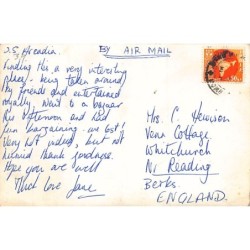 S.S. Arcadia.
BY AIR MAIL
Finding this a very interesting
place - being taken around
by friends and entertained
royally. Went to a bazaar
this afternoon and had
fun bargaining - we lost!
Very hot indeed, but not
humid thank goodness.
Hope you are well
Much love Jane.
Mrs. C. Hewison
Vean Cottage
Whitchurch
Nr Reading
Berks.
ENGLAND.